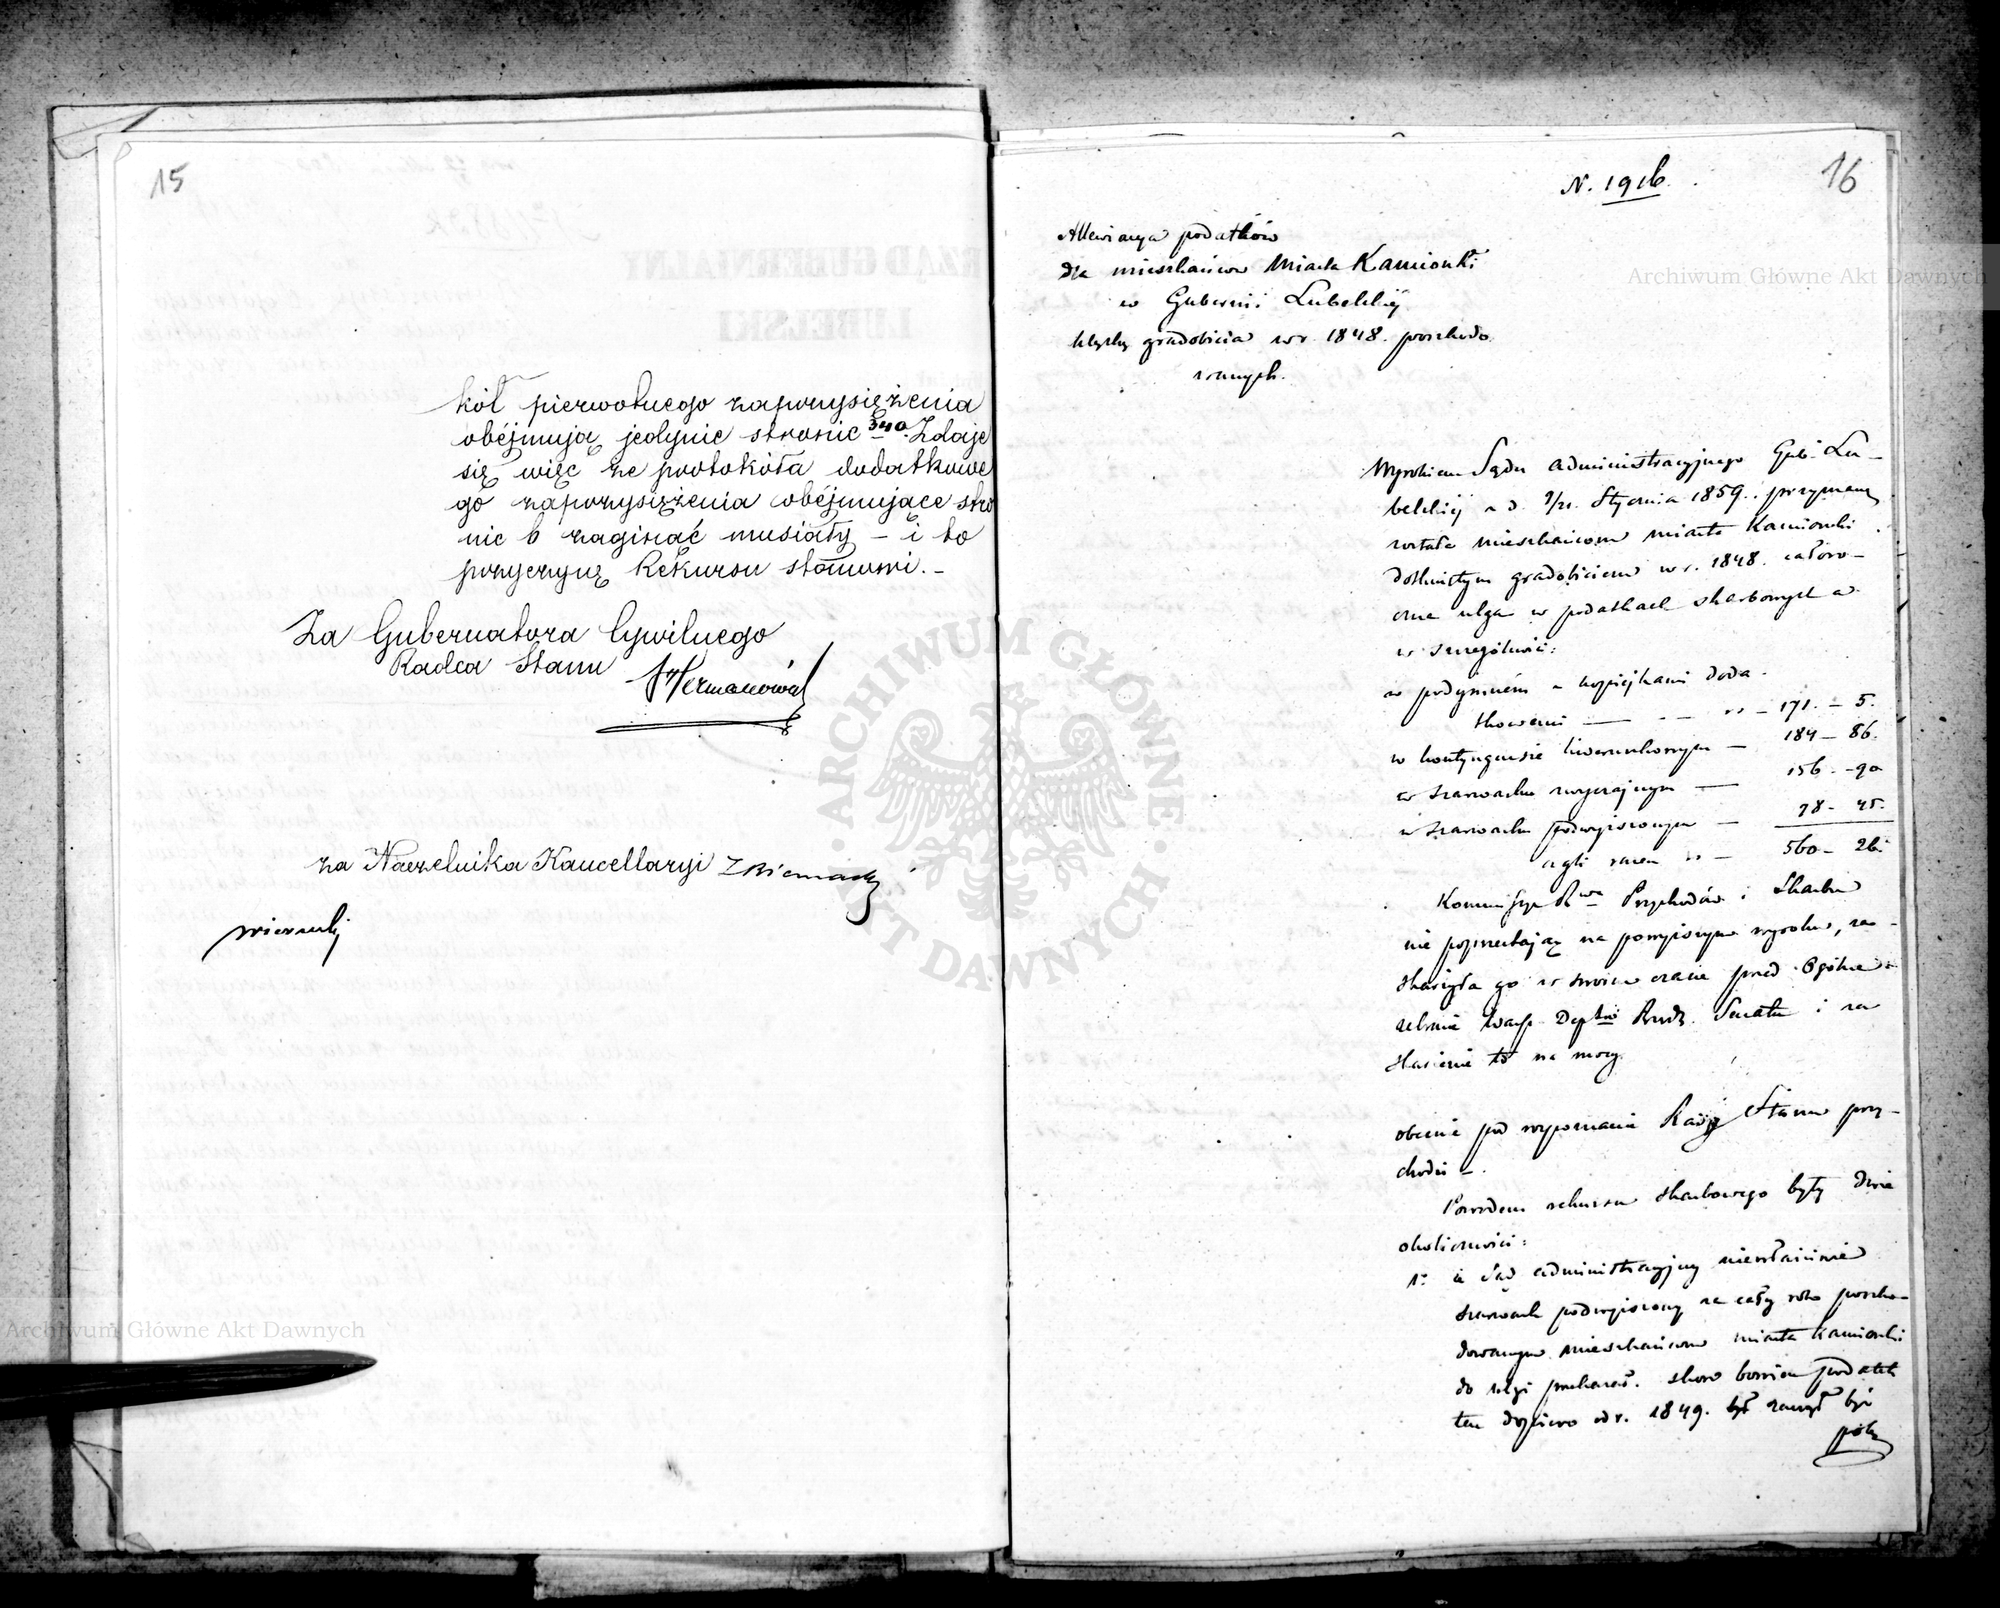 15
kół pierwotnego zaprzysiężenia
obéjmują jedynie stronic 340. Zdaje
się więc że protokóła dodatkowe
go zaprzysiężenia obéjmujące stro
nic 6 zaginąć musiały – i to
przyczynę Rekursu stanowi. –
Za Gubernatora Cywilnego
Radca Stanu
za Naczelnika Kancellaryi
16
N. 1916.
Allewiacya podatków
dla mieszkańców Miasta Kamionki
w Gubernii Lubelskiéj
klęską gradobicia w r. 1848. poszkodo
wanych.
Wyrokiem Sądu Administracyjnego Gub. Lu–
belskiéj z d. 9/21. Stycznia 1859. przyznaną
została mieszkańcom miasta Kamionki
dotkniętym gradobiciem w r. 1848. całoro–
czna ulga w podatkach skarbowych a
w szczególności:
w podymném z kopiejkami doda
tkowemi — rs – 171. – 5.
w kontyngensie liwerunkowym — 184 – 86.
w szarwarku zwyczajnym — 156 – 90
w szarwarku podwyższonym — 78 – 45.
czyli razem rs — 560 – 26.
Kommissya Rwa Przychodów i Skarbu
nie poprzestając na powyższym wyroku, za–
skarżyła go w swoim czasie przed Ogólne
zebranie Warsz. Deptów Rządz. Senatu i za
skarżenie to na mocy
obecnie pod rozpoznanie Rady Stanu przy–
chodzi –.
Powodem rekursu skarbowego były dwie
okoliczności:
1o że Sąd administracyjny niewłaściwie
szarwark podwyższony za cały rok poszko–
dowanym mieszkańcom miasta Kamionki
do ulgi przekazał. skoro bowiem podatek
ten dopiero od r. 1849. był zaczął być
Archiwum Główne Akt Dawnych
Archiwum Główne Akt Dawnych
ARCHIWUM GŁÓWNE AKT DAWNYCH